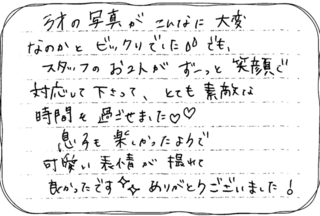 の写真がこんなに大変
なのかとビックリでした でも、
スタッフのお2人がずーっと笑顔で
対応して下さって、とても素敵な
時間を過ごせました♡♡
息子も楽しかったようで
可愛い表情が撮れて
良かったです ありがとうございました!